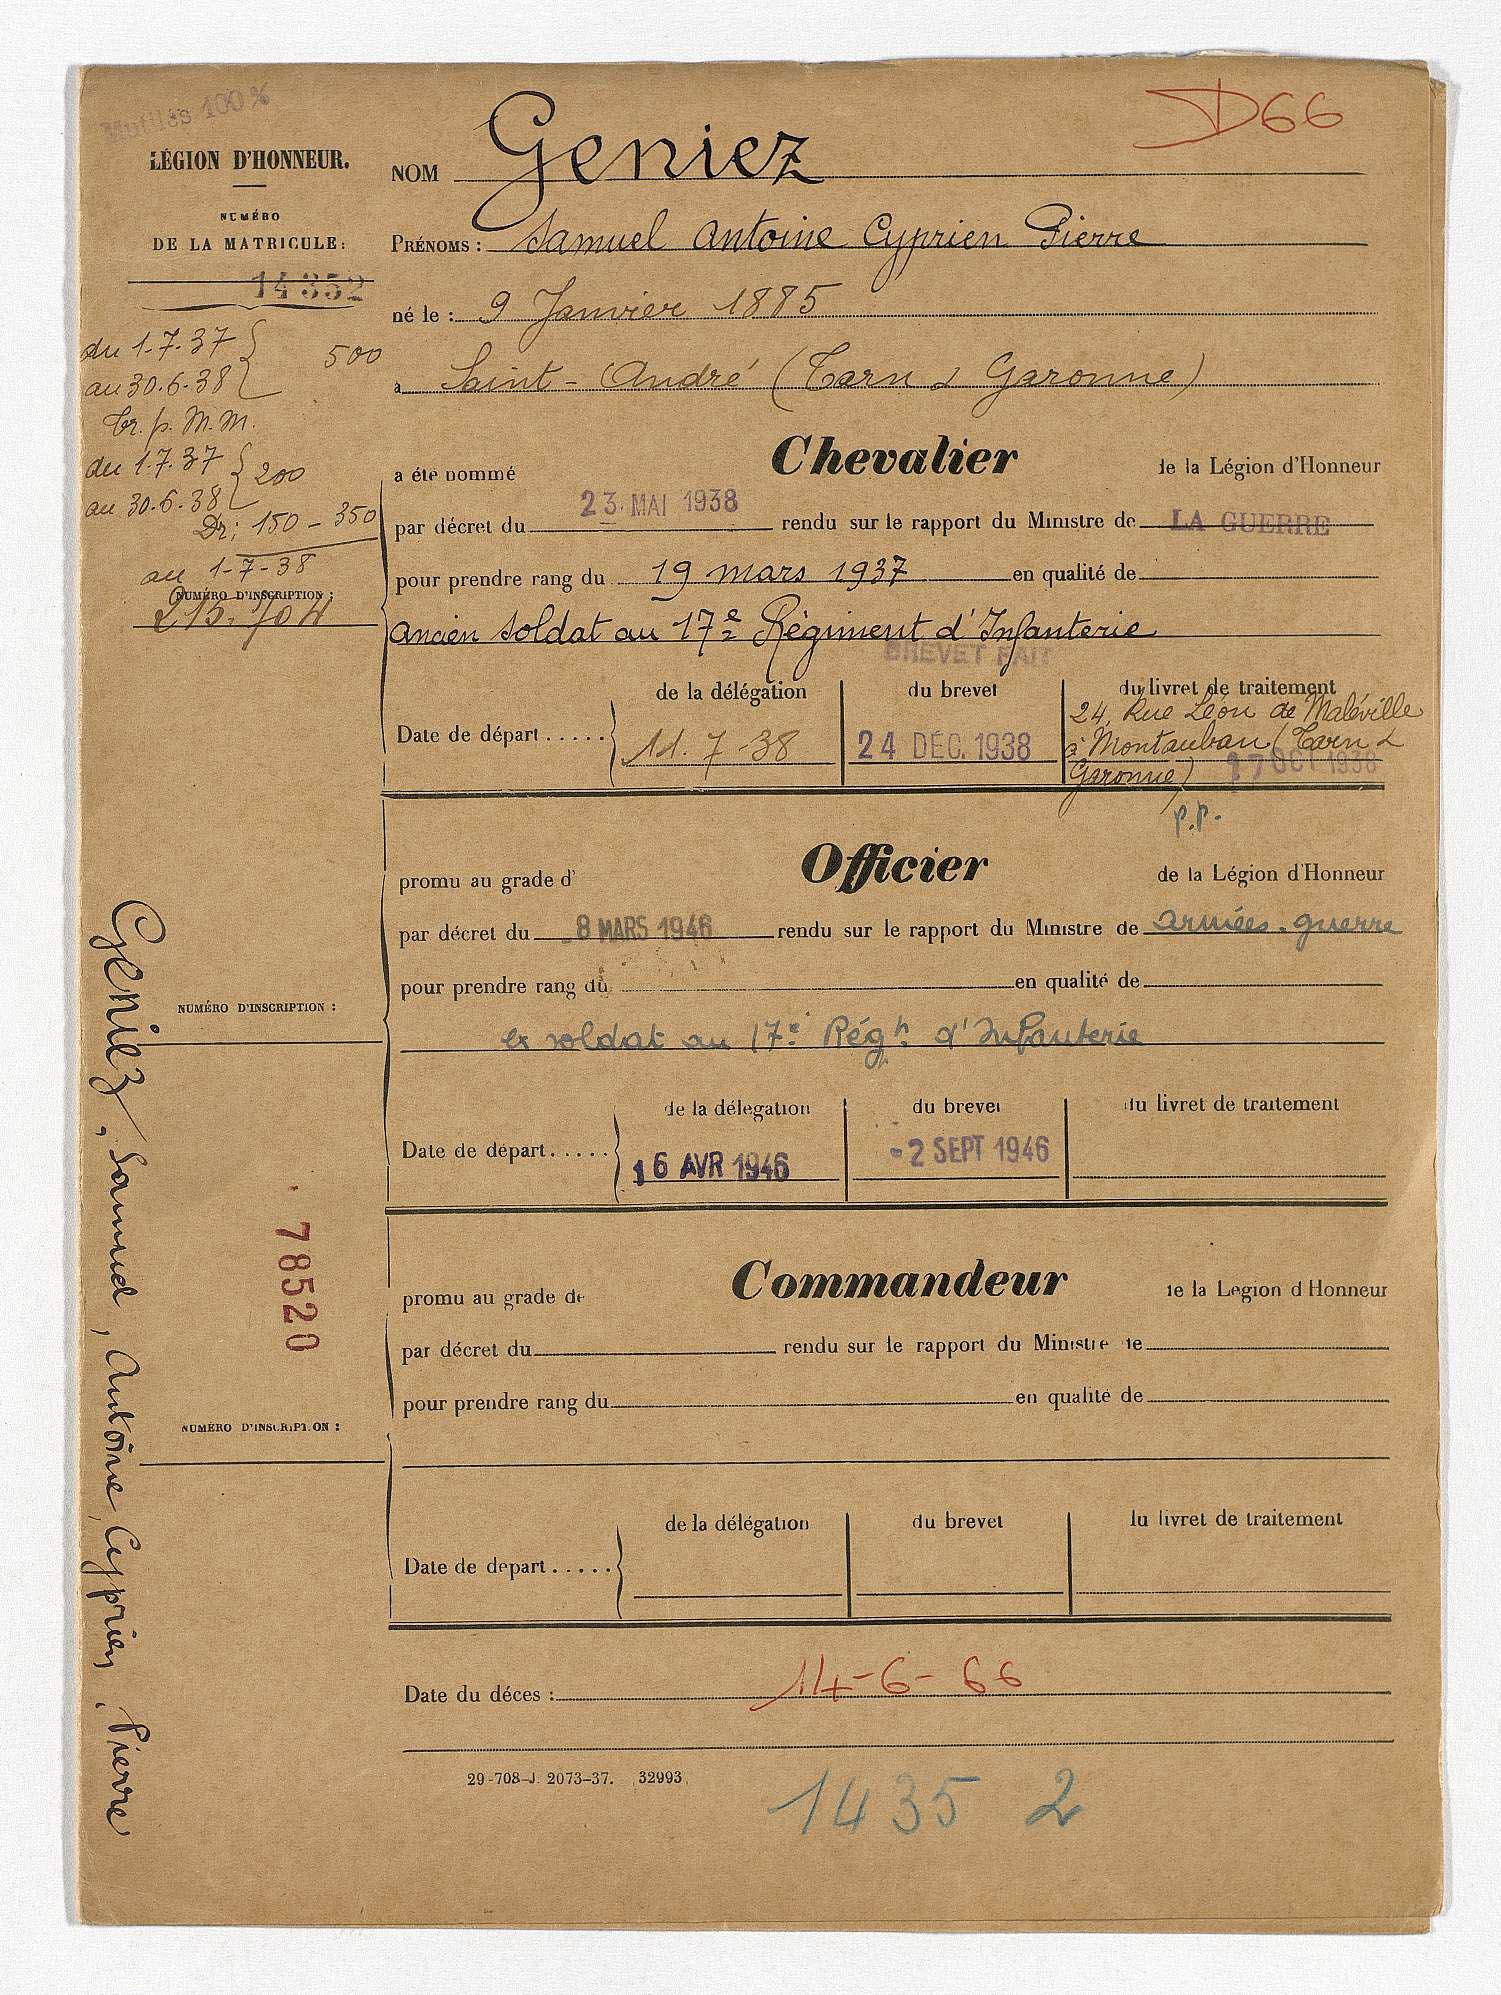 Mutilés 100%
D66
LÉGION D'HONNEUR.
NUMÉRO
DE LA MATRICULE:
14352
NOM Geniez
PRÉNOMS: Samuel Antoine Cyprien Pierre
né le: 9 Janvier 1885
a Saint-André (Tarn & Garonne)
du 1.7.37
au 30.6.38
500
Tr. p. M.M.
du 1.7.37
au 30.6.38
200
Dr: 150 - 350
au 1-7-38
NUMÉRO D'INSCRIPTION:
215.704
a été nommé Chevalier de la Légion d'Honneur
par décret du 23. MAI 1938 rendu sur le rapport du Ministre de LA GUERRE
pour prendre rang du 19 mars 1937 en qualité de
ancien soldat au 17e Régiment d'Infanterie
BREVET FAIT
de la délégation du brevet du livret de traitement
24, Rue Léon de Maléville
à Montauban (Tarn &
Garonne)
Date de départ..... 11.7-38 24 DÉC. 1938 17 OCT 1938
p.p.
promu au grade d' Officier de la Légion d'Honneur
par décret du -8 MARS 1946 rendu sur le rapport du Ministre de armées. guerre
pour prendre rang du en qualité de
NUMÉRO D'INSCRIPTION:
ex soldat au 17e Régt d'Infanterie
de la délégation du brevet du livret de traitement
Date de départ..... 16 AVR 1946 -2 SEPT 1946
78520
promu au grade de Commandeur de la Légion d'Honneur
par décret du rendu sur le rapport du Ministre de
pour prendre rang du en qualité de
NUMÉRO D'INSCRIPTION:
de la délégation du brevet du livret de traitement
Date de départ.....
Date du décès: 14-6-66
29-708-J. 2073-37. 32993
1435 2
Geniez, Samuel, Antoine, Cyprien, Pierre